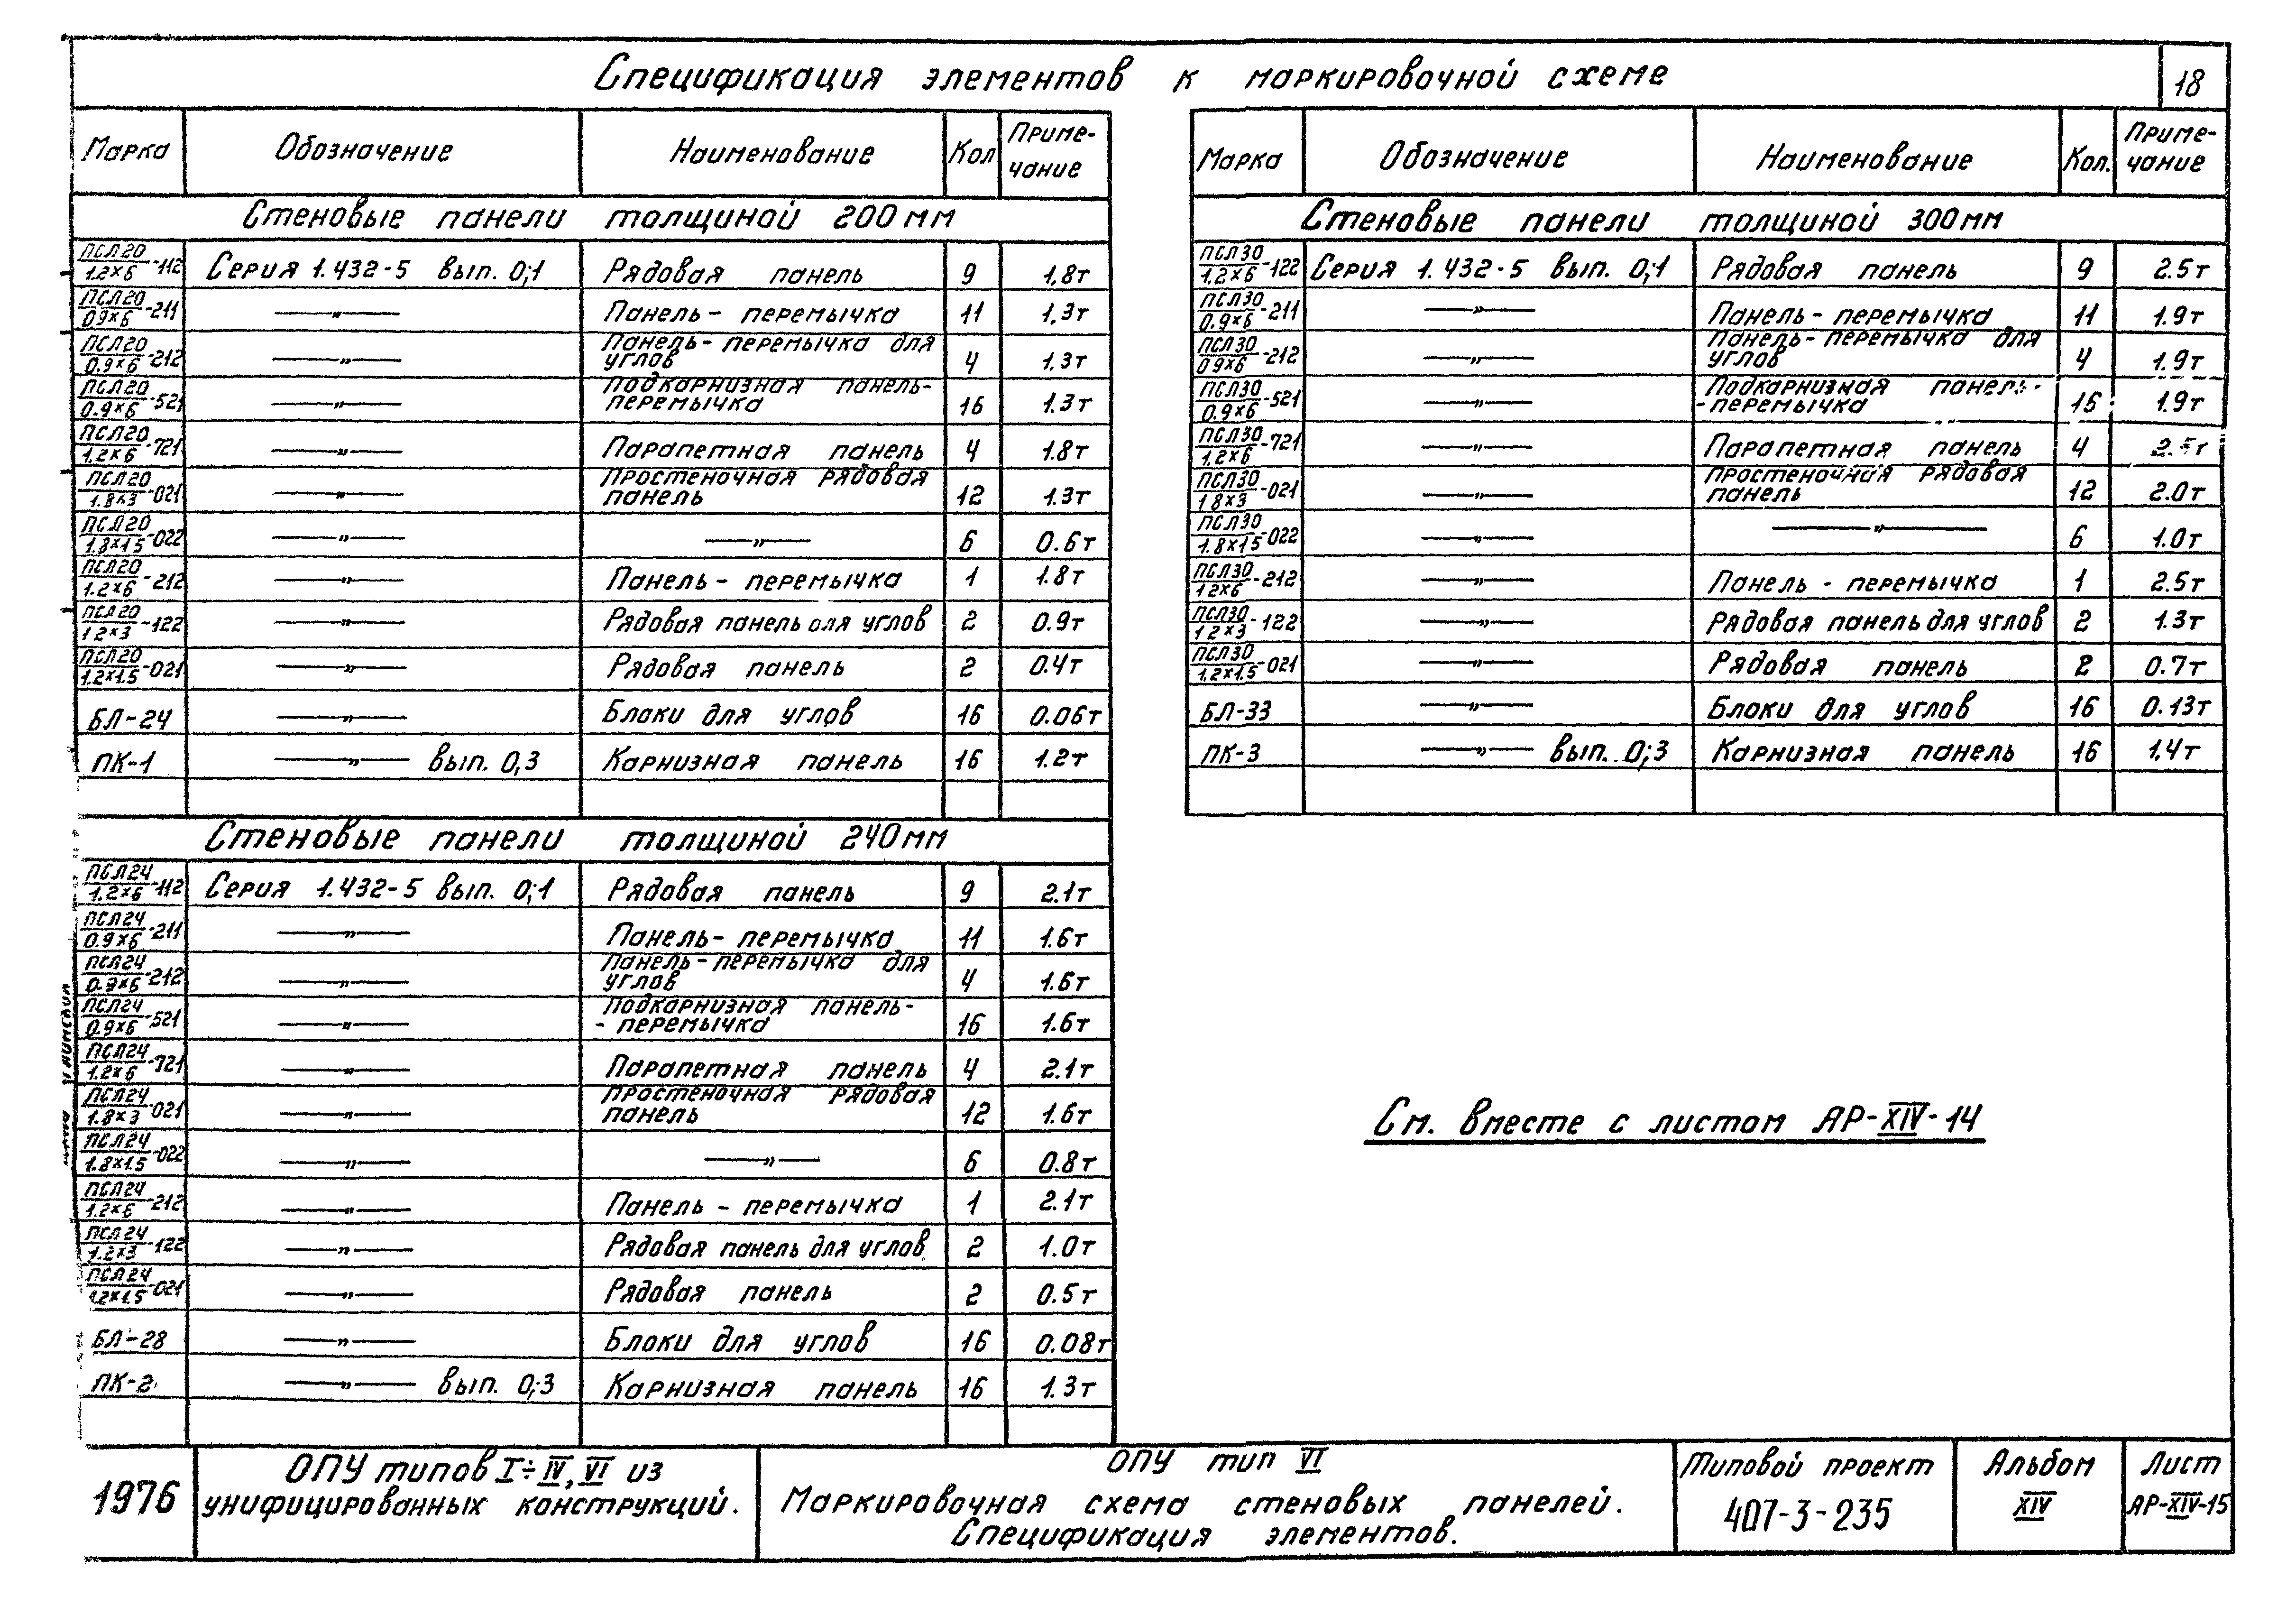 Спецификация элементов к маркировочной схеме
18
Марка Обозначение Наименование Кол Приме-чание
Стеновые панели толщиной 200мм
ПСЛ20/1.2×6-112 Серия 1.432-5 вып. 0;1 Рядовая панель 9 1,8т
ПСЛ20/09×6-211 —„— Панель- перемычка 11 1,3т
ПСЛ20/0.9×6-212 —„— Панель-перемычка для углов 4 1,3т
ПСЛ20/0.9×6-521 —„— Подкарнизная панель-перемычка 16 1.3т
ПСЛ20/1.2×6-721 —„— Парапетная панель 4 1.8т
ПСЛ20/1.8×3-021 —„— Простеночная рядовая панель 12 1.3т
ПСЛ20/1.8×1.5-022 —„— —„— 6 0.6т
ПСЛ20/1.2×6-212 —„— Панель- перемычка 1 1.8т
ПСЛ20/1 2×3-122 —„— Рядовая панель для углов 2 0.9т
ПСЛ20/1.2×1.5-021 —„— Рядовая панель 2 0.4т
БЛ-24 —„— Блоки для углов 16 0.06т
ПК-1 —„— вып. 0,3 Карнизная панель 16 1.2т
Стеновые панели толщиной 240мм
ПСЛ24/1.2×6-112 Серия 1.432-5 вып. 0;1 Рядовая панель 9 2.1т
ПСЛ24/0.9×6-211 —„— Панель- перемычка 11 1.6т
ПСЛ24/0.9×6-212 —„— Панель-перемычка для углов 4 1.6т
ПСЛ24/0.9×6-521 —„— Подкарнизная панель--перемычка 16 1.6т
ПСЛ24/1.2×6-721 —„— Парапетная панель 4 2.1т
ПСЛ24/1.8×3-021 —„— Простеночная рядовая панель 12 1.6т
ПСЛ24/1.8×1.5-022 —„— —„— 6 0.8т
ПСЛ24/1.2×6-212 —„— Панель - перемычка 1 2.1т
ПСЛ24/1.2×3-122 —„— Рядовая панель для углов 2 1.0т
ПСЛ24/1.2×1.5-021 —„— Рядовая панель 2 0.5т
БЛ-28 —„— Блоки для углов 16 0.08т
ПК-2 —„— вып. 0;3 Карнизная панель 16 1.3т
Марка Обозначение Наименование Кол. Приме-чание
Стеновые панели толщиной 300мм
ПСЛ30/1.2×6-122 Серия 1.432-5 вып. 0;1 Рядовая панель 9 2.5т
ПСЛ30/0.9×6-211 —„— Панель- перемычка 11 1.9т
ПСЛ30/09×6-212 —„— Панель-перемычка для углов 4 1.9т
ПСЛ30/0.9×6-521 —„— Подкарнизная панель--перемычка 16 1.9т
ПСЛ30/1.2×6-721 —„— Парапетная панель 4 2.5т
ПСЛ30/1 8×3-021 —„— Простеночная рядовая панель 12 2.0т
ПСЛ30/1.8×1.5-022 —„— —„— 6 1.0т
ПСЛ30/1 2×6-212 —„— Панель - перемычка 1 2.5т
ПСЛ30/1 2×3-122 —„— Рядовая панель для углов 2 1.3т
ПСЛ30/1.2×1.5-021 —„— Рядовая панель 2 0.7т
БЛ-33 —„— Блоки для углов 16 0.13т
ПК-3 —„— вып. 0;3 Карнизная панель 16 1,4т
См. вместе с листом АР-XIV-14
1976
ОПУ типов I÷IV, VI из
унифицированных конструкций.
ОПУ тип VI
Маркировочная схема стеновых панелей.
Спецификация элементов.
Типовой проект
407-3-235
Альбом
XIV
Лист
АР-XIV-15